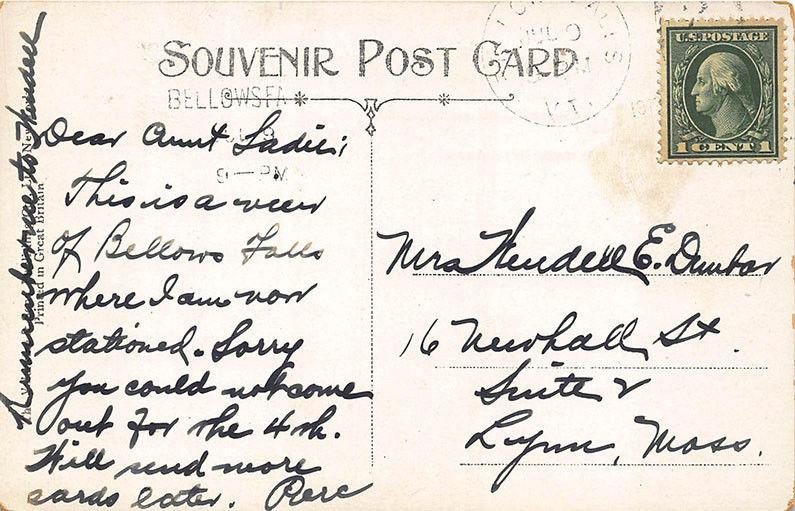 SOUVENIR POST CARD
U.S. POSTAGE
1 CENT 1
BELLOWS FA
9 — PM
VT.
Dear Aunt Sadie:
This is a view
of Bellows Falls
where I am now
stationed. Sorry
you could not come
out for the 4th.
Will send more
cards later.
Remember me to Wendell
Printed in Great Britain
Mrs Wendell E. Dunbar
16 Newhall St.
Suite 2
Lynn, Mass.